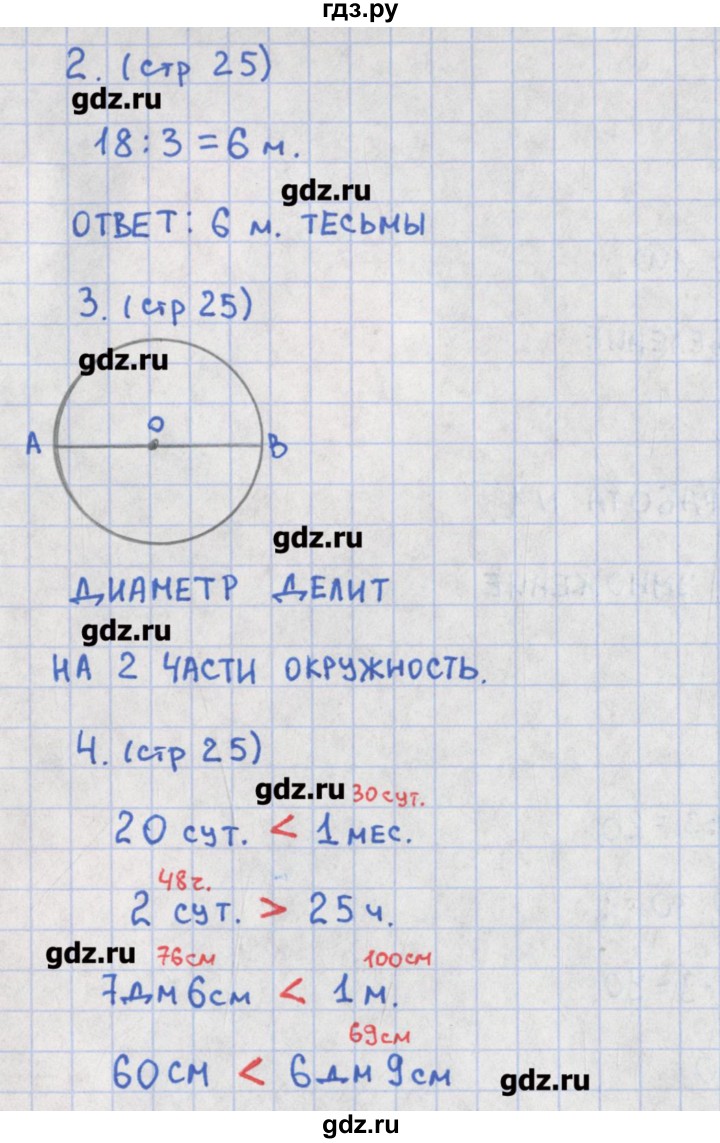 гдз.ру
2. (стр 25)
gdz.ru
18 : 3 = 6 м.
gdz.ru
ОТВЕТ: 6 м. ТЕСЬМЫ
3. (стр 25)
gdz.ru
О
А В
gdz.ru
ДИАМЕТР ДЕЛИТ
gdz.ru
НА 2 ЧАСТИ ОКРУЖНОСТЬ.
4. (стр 25)
gdz.ru 30 сут.
20 сут. < 1 мес.
48 г.
2 сут. > 25 ч.
gdz.ru 76 см 100 см
7 дм 6 см < 1 м.
69 см
60 см < 6 дм 9 см
gdz.ru
gdz.ru